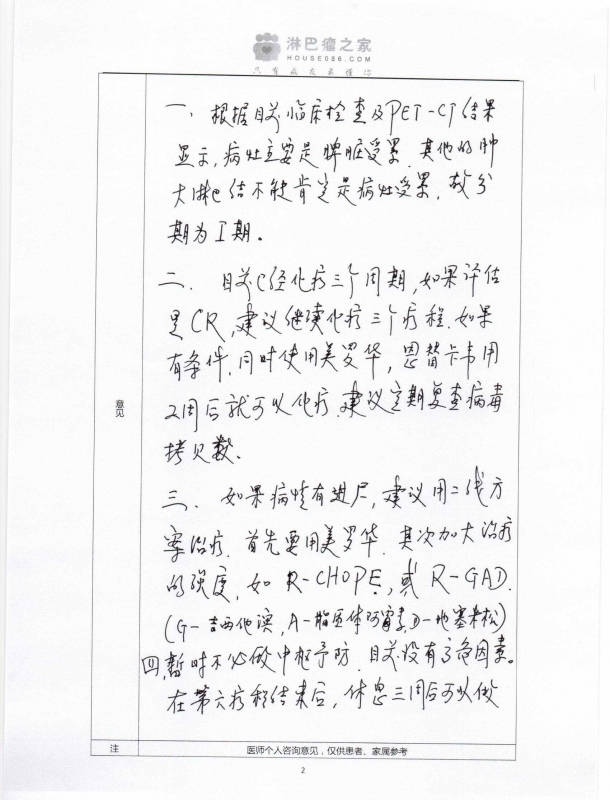 淋巴瘤之家
HOUSE086.COM
只有病友最懂你
一、根据目前临床检查及PET-CT结果
显示,病灶主要是脾脏受累,其他的肿
大淋巴结不能肯定是病灶受累,故分
期为I期。
二、目前已经化疗三个周期,如果评估
是CR,建议继续化疗三个疗程.如果
有条件,同时使用美罗华,恩替卡韦用
2周后就可以化疗.建议定期复查病毒
拷贝数.
三、如果病情有进展,建议用二线方
案治疗.首先要用美罗华.其次加大治疗
的强度,如R-CHOPE,或R-GAD.
(G-吉西他滨,A-脂质体阿霉素,D-地塞米松)
四,暂时不必做中枢予防.目前没有高危因素。
在第六疗程结束后,休息三周后可以做
意见
注
医师个人咨询意见,仅供患者、家属参考
2